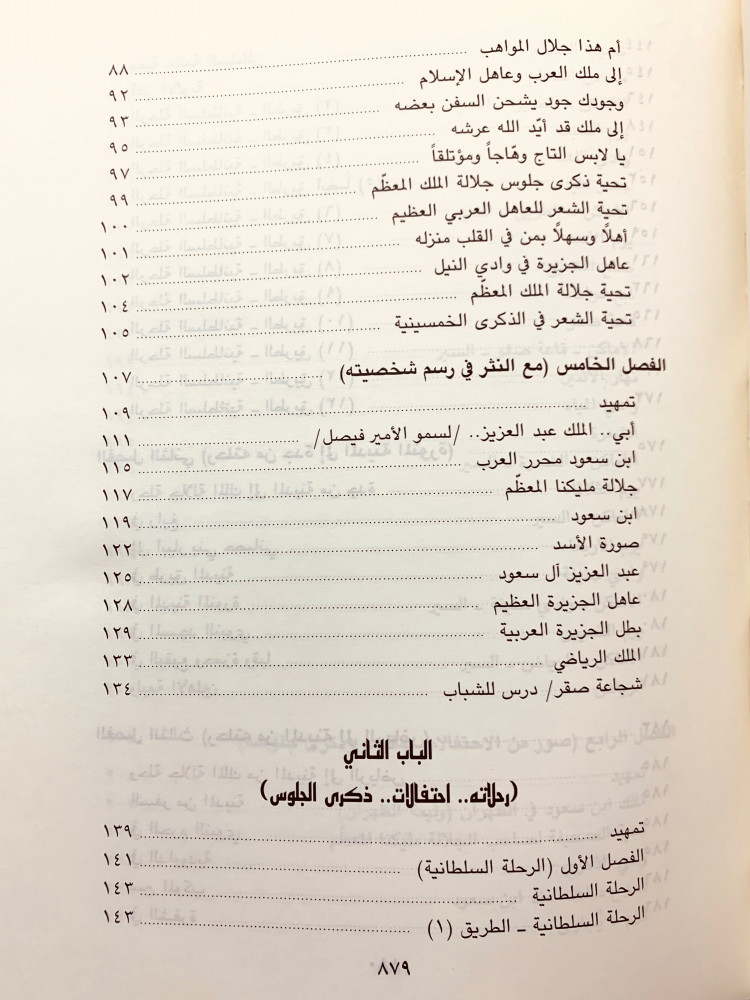 أم هذا جلال المواهب ........ ٨٨
إلى ملك العرب وعاهل الإسلام ........ ٩٢
وجودك جود يشحن السفن بعضه ........ ٩٣
إلى ملك قد أيّد الله عرشه ........ ٩٥
يا لابس التاج وهّاجاً ومؤتلقاً ........ ٩٧
تحية ذكرى جلوس جلالة الملك المعظّم ........ ٩٩
تحية الشعر للعاهل العربي العظيم ........ ١٠٠
أهلاً وسهلاً بمن في القلب منزله ........ ١٠١
عاهل الجزيرة في وادي النيل ........ ١٠٢
تحية جلالة الملك المعظّم ........ ١٠٤
تحية الشعر في الذكرى الخمسينية ........ ١٠٥
الفصل الخامس (مع النثر في رسم شخصيته) ........ ١٠٧
تمهيد ........ ١٠٩
أبي.. الملك عبد العزيز.. /لسمو الأمير فيصل/ ........ ١١١
ابن سعود محرر العرب ........ ١١٥
جلالة مليكنا المعظّم ........ ١١٧
ابن سعود ........ ١١٩
صورة الأسد ........ ١٢٢
عبد العزيز آل سعود ........ ١٢٥
عاهل الجزيرة العظيم ........ ١٢٨
بطل الجزيرة العربية ........ ١٢٩
الملك الرياضي ........ ١٣٣
شجاعة صقر/ درس للشباب ........ ١٣٤
الباب الثاني
(رحلاته.. احتفالات.. ذكرى الجلوس)
تمهيد ........ ١٣٩
الفصل الأول (الرحلة السلطانية) ........ ١٤١
الرحلة السلطانية ........ ١٤٣
الرحلة السلطانية ـ الطريق (١) ........ ١٤٣
٨٧٩